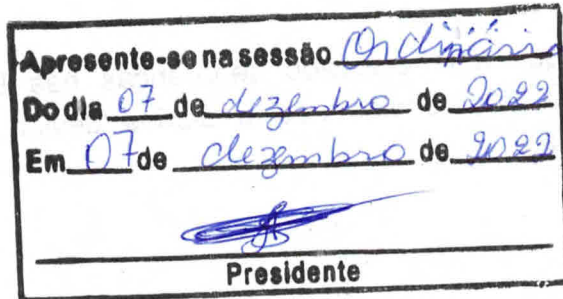 Apresente-se na sessão Ordinária
Do dia 07 de dezembro de 2022
Em 07 de dezembro de 2022
Presidente